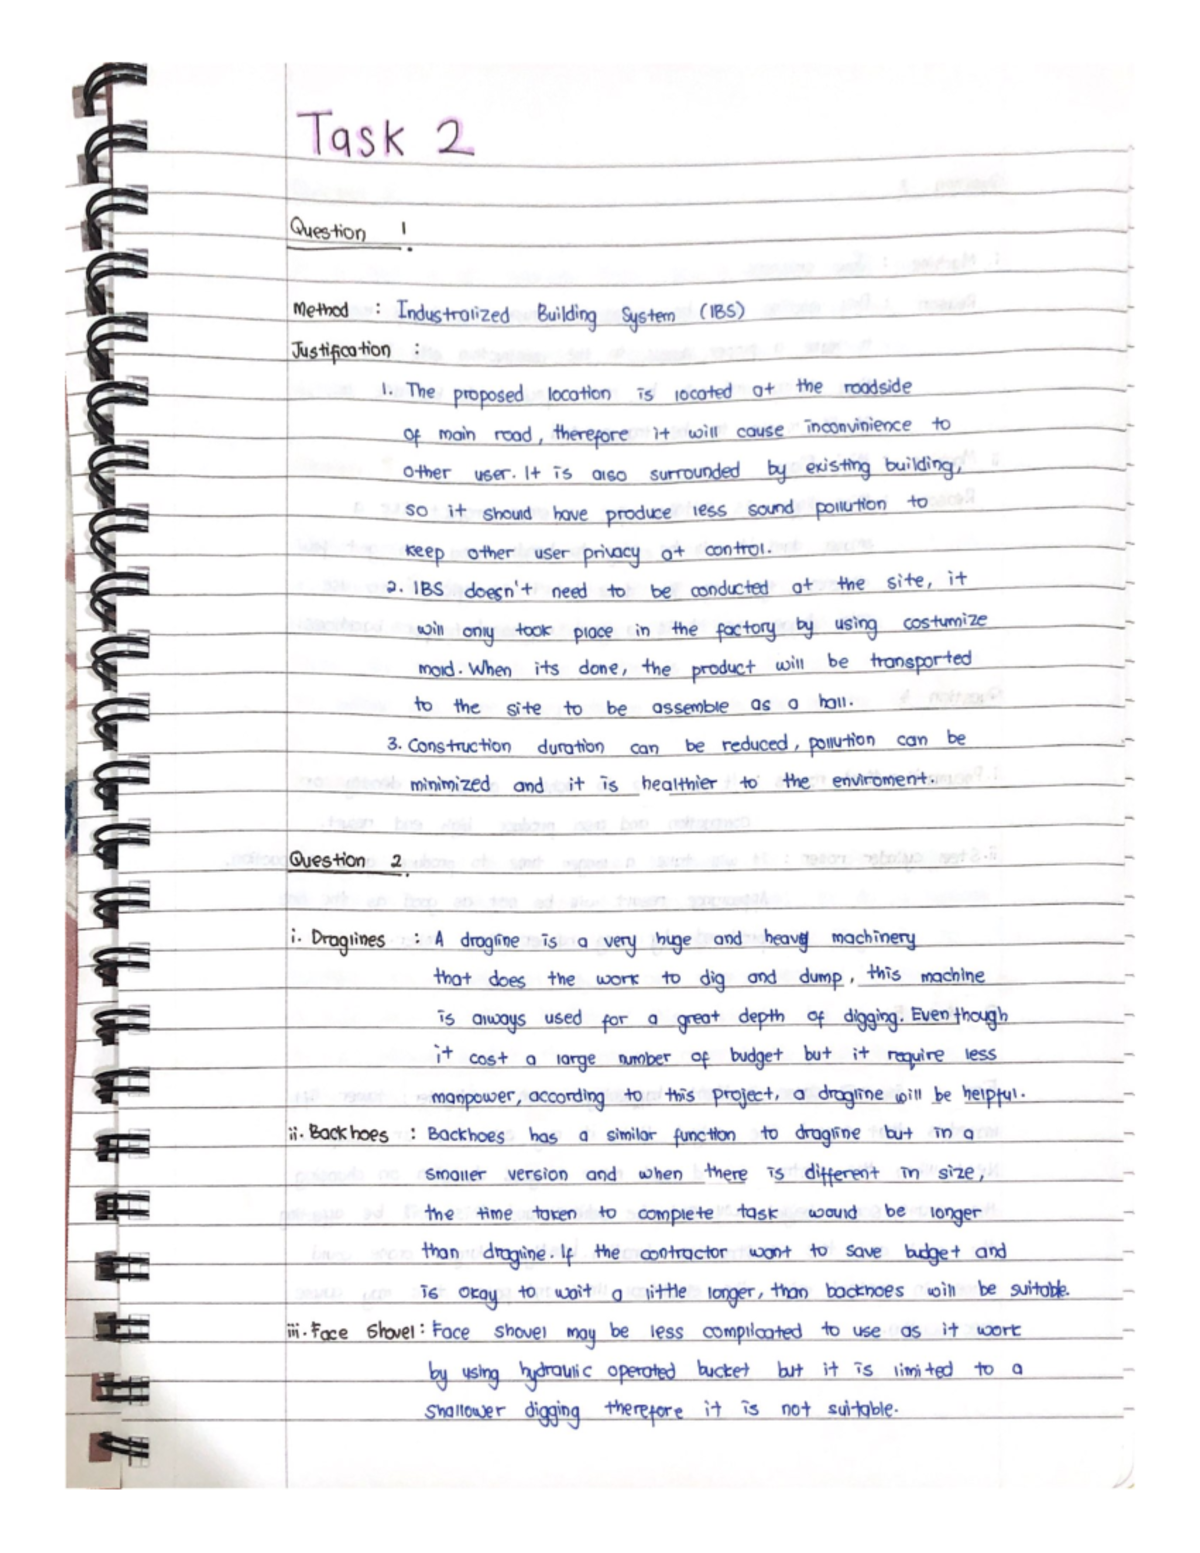 Task 2
Question 1
Method : Industralized Building System (IBS)
Justification :
1. The proposed location is located at the roadside
of main road, therefore it will cause inconvinience to
other user. It is also surrounded by existing building,
so it should have produce less sound pollution to
keep other user privacy at control.
2. IBS doesn't need to be conducted at the site, it
will only took place in the factory by using costumize
mold. When its done, the product will be transported
to the site to be assemble as a hall.
3. Construction duration can be reduced, pollution can be
minimized and it is healthier to the enviroment.
Question 2
i. Draglines : A dragline is a very huge and heavy machinery
that does the work to dig and dump, this machine
is always used for a great depth of digging. Even though
it cost a large number of budget but it require less
manpower, according to this project, a dragline will be helpful.
ii. Backhoes : Backhoes has a similar function to dragline but in a
smaller version and when there is different in size,
the time taken to complete task would be longer
than dragline. If the contractor want to save budget and
is okay to wait a little longer, than backhoes will be suitable.
iii. Face Shovel : Face shovel may be less complicated to use as it work
by using hydraulic operated bucket but it is limited to a
shallower digging therefore it is not suitable.